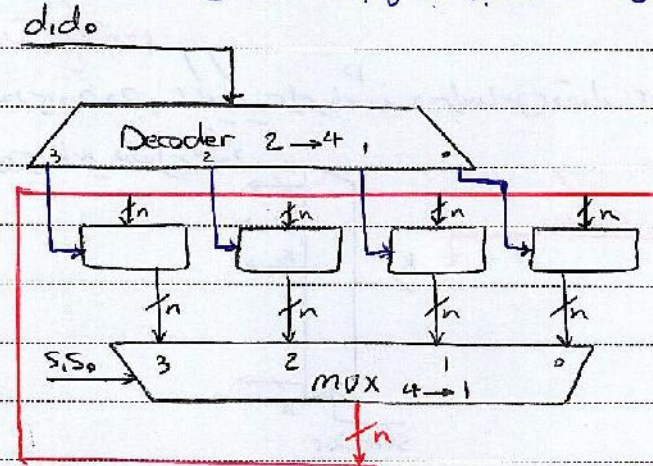 d₁d₀
Decoder 2→4
3 2 1 0
n n n n
n n n n
S₁S₀
3 2 1 0
mux 4→1
n